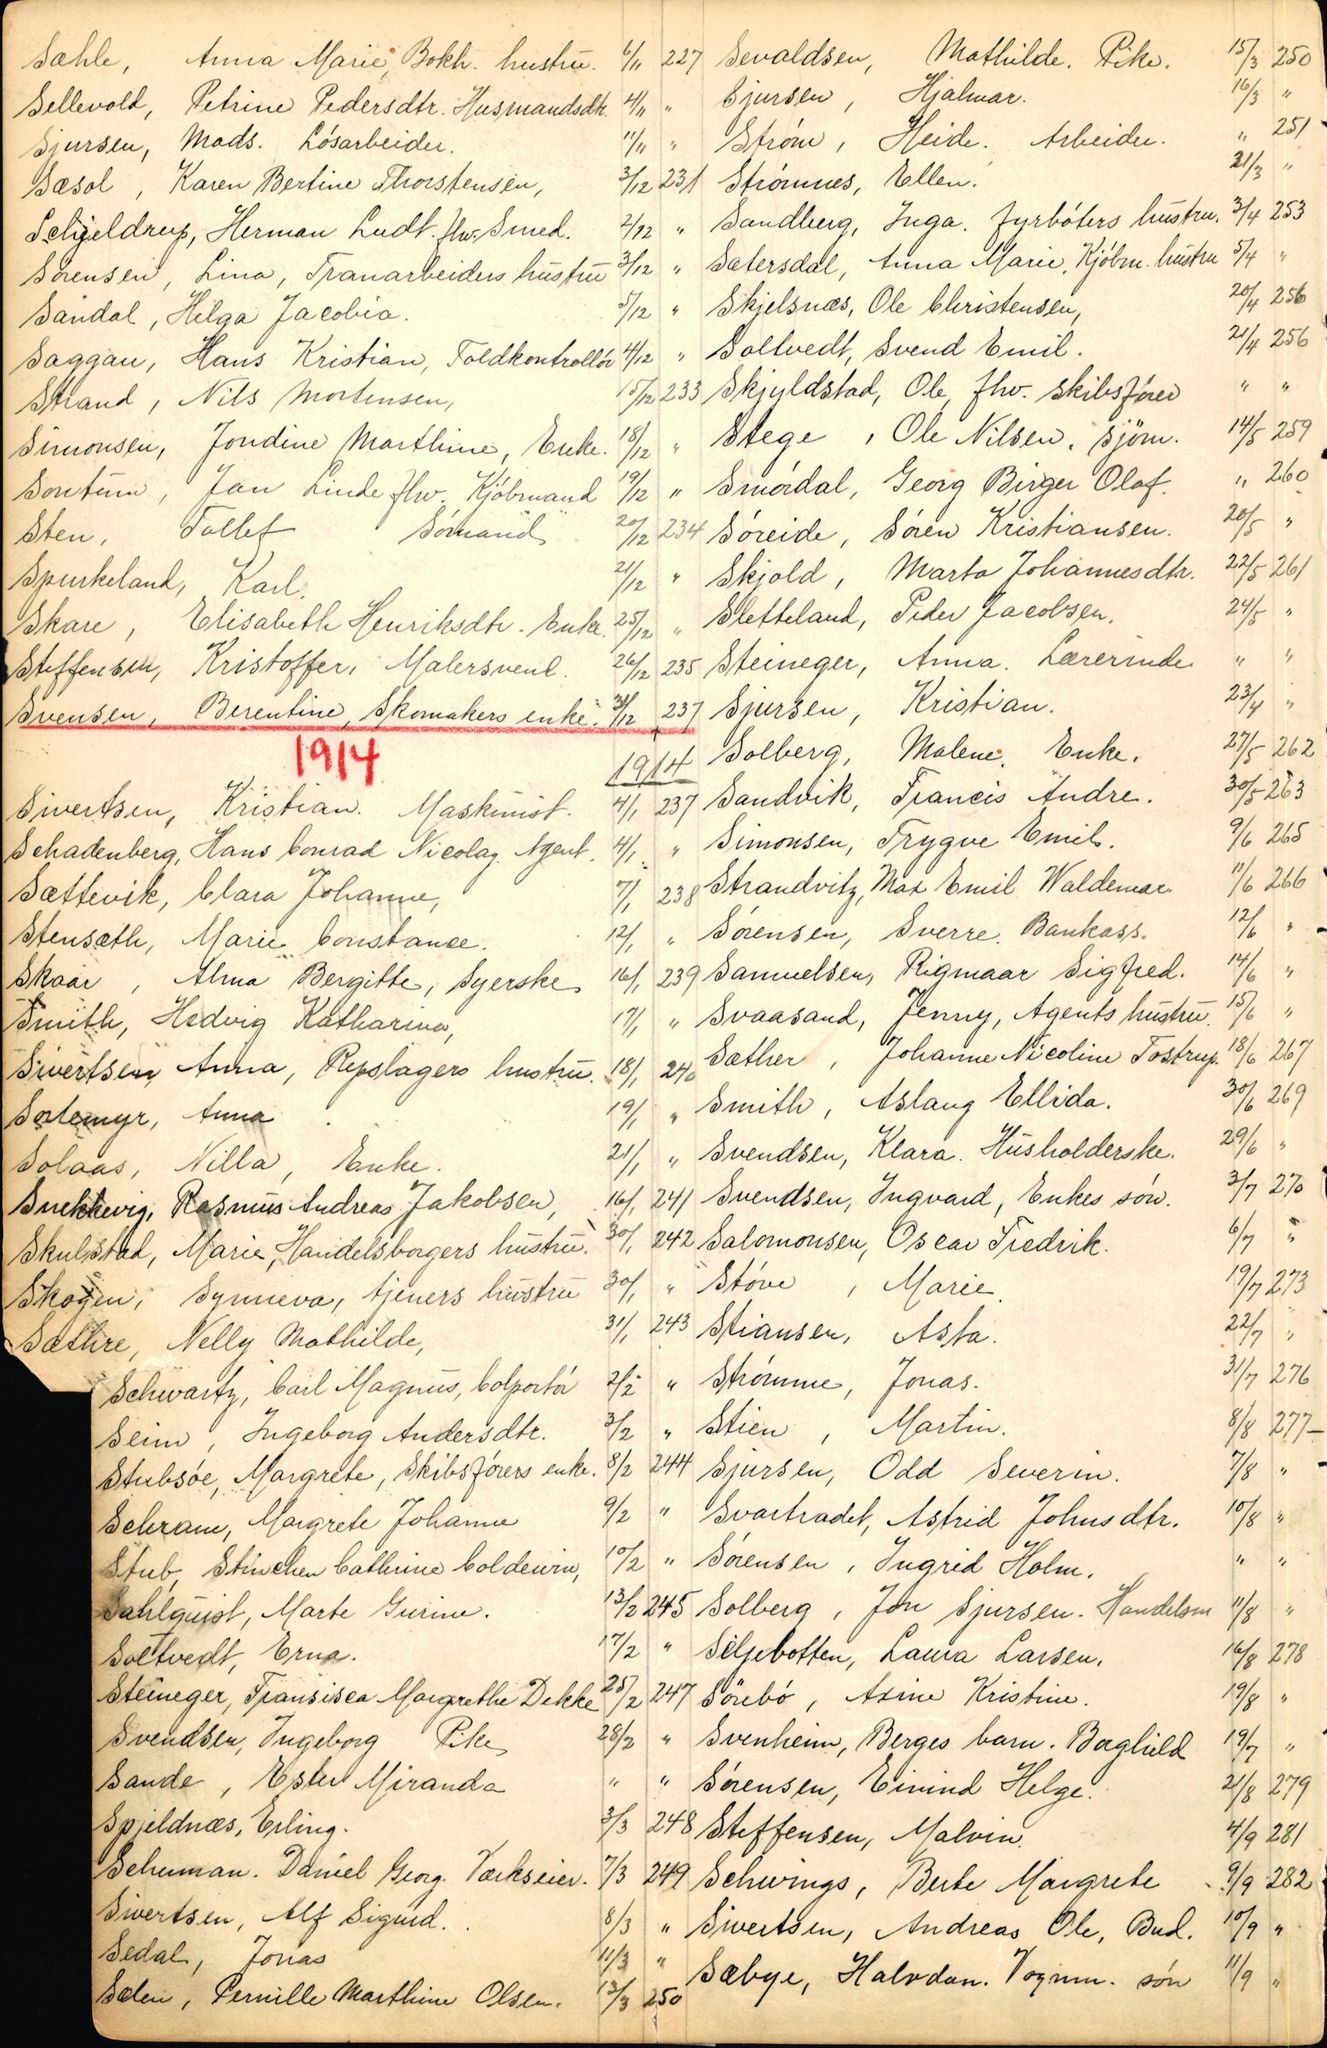 Sæhle, Anna Marie, Bokh. hustru. 6/11 227
Sellevold, Petrine Pedersdtr. Husmandsdtr. 4/11 "
Sjursen, Mads. Løsarbeider. 11/11 "
Sæsol, Karen Bertine Thorstensen, 3/12 231
Schjeldrup, Herman Ludt. fhv. Smed. 2/12 "
Sørensen, Lina, Tranarbeiders hustru 3/12 "
Sandal, Helga Jacobia. 5/12 "
Saggau, Hans Kristian, Toldkontrollør 4/12 "
Strand, Nils Mortensen, 15/12 233
Simonsen, Jondine Marthine, Enke. 18/12 "
Sontum, Jan Linde fhv. Kjøbmand 19/12 "
Sten, Tollef Sømand 20/12 234
Spurkeland, Karl. 21/12 "
Skare, Elisabeth Henriksdtr. Enke. 25/12 "
Steffensen, Kristoffer, Malersvend. 26/12 235
Svensen, Berentine, Skomakers enke. 31/12 237
1914
1914
Sivertsen, Kristian. Maskinist. 4/1 237
Schadenberg, Hans Conrad Nicolay Agent. 4/1 "
Sættevik, Clara Johanne, 7/1 238
Stensæth, Marie Constance. 12/1 "
Skaar, Alma Bergitte, Syerske 16/1 239
Smith, Hedvig Katharina, 17/1 "
Sivertsen, Anna, Repslagers hustru. 18/1 240
Sortemyr, Anna 19/1 "
Solaas, Nilla, Enke. 21/1 "
Snekkevig, Rasmus Andreas Jakobsen, 16/1 241
Skulstad, Marie, Handelsborgers hustru. 30/1 242
Skogen, Synneva, tjeners hustru 30/1 "
Sæthre, Nelly Mathilde, 31/1 243
Schwartz, Carl Magnus, Colportør 2/2 "
Seim, Ingeborg Andersdtr. 3/2 "
Stubsøe, Margrete, Skibsførers enke. 8/2 244
Schram, Margrete Johanne 9/2 "
Stub, Stinchen Cathrine Coldewin, 10/2 "
Sahlquist, Marte Gurine. 13/2 245
Soltvedt, Erna. 17/2 "
Steineger, Fransisca Margrethe Dekke 25/2 247
Svendsen, Ingeborg Pike 28/2 "
Sande, Ester Miranda " "
Spjeldnæs, Erling. 3/3 248
Schuman. Daniel Georg. Værkseier. 7/3 249
Sivertsen, Alf Sigurd. 8/3 "
Sedal, Jonas 11/3 "
Sælen, Pernille Marthine Olsen. 13/3 250
Sevaldsen, Mathilde. Pike. 15/3 250
Sjursen, Hjalmar. 16/3 "
Strøm, Heide. Arbeider. " 251
Strømnes, Ellen. 21/3 "
Sandberg, Inga. fyrbøters hustru. 3/4 253
Sætersdal, Anna Marie, Kjøbm. hustru 5/4 "
Skjelsnæs, Ole Christensen, 20/4 256
Soltvedt, Svend Emil. 21/4 256
Skjyldstad, Ole, fhv. skibsfører " "
Stege, Ole Nilsen, sjøm. 14/5 259
Smørdal, Georg Birger Olaf. " 260
Søreide, Søren Kristiansen. 20/5 "
Skjold, Marta Johannesdtr. 22/5 261
Sletteland, Peder Jacobsen. 24/5 "
Steineger, Anna. Lærerinde " "
Sjursen, Kristian. 23/4 "
Solberg, Malene, Enke. 27/5 262
Sandvik, Francis Andre. 30/5 263
Simonsen, Trygve Emil. 9/6 265
Strandvitz, Max Emil Waldemar. 11/6 266
Sørensen, Sverre. Bankass. 12/6 "
Samuelsen, Rigmaar Sigfred. 14/6 "
Svaasand, Jenny, Agents hustru. 15/6 "
Sæther, Johanne Nicoline Tostrup. 18/6 267
Smith, Aslaug Ellida. 30/6 269
Svendsen, Klara. Husholderske. 29/6 "
Svendsen, Ingvard, Enkes søn. 3/7 270
Salomonsen, Oscar Fredrik. 6/7 "
Støve, Marie. 19/7 273
Stiansen, Asta. 22/7 "
Strømme, Jonas. 31/7 276
Stien, Martin. 8/8 277
Sjursen, Odd Severin. 7/8 "
Svartradet, Astrid Johnsdtr. 10/8 "
Sørensen, Ingrid Holm. " "
Solberg, Jon Sjursen. Handelsm 11/8 "
Seljebotten, Laura Larsen. 16/8 278
Sörebø, Axine Kristine. 19/8 "
Svenheim, Berges barn. Borghild 19/7 "
Sørensen, Eivind Helge. 21/8 279
Steffensen, Malvin. 4/9 281
Schwings, Berte Margrete 9/9 282
Sivertsen, Andreas Ole, Bud. 10/9 "
Sæbye, Halvdan. Vognm. søn 11/9 "